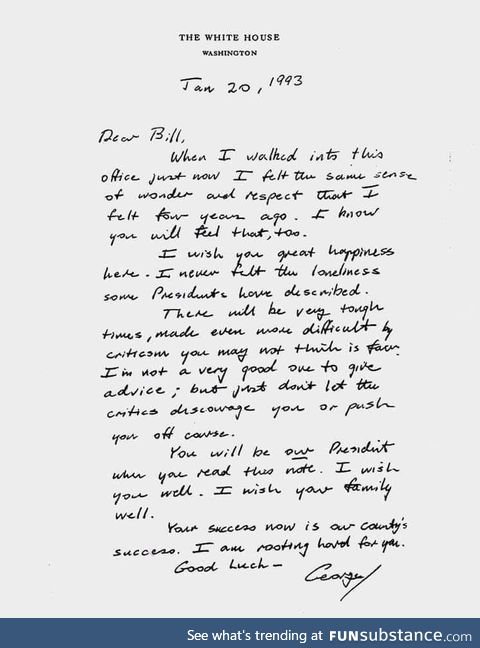 THE WHITE HOUSE
WASHINGTON
Jan 20, 1993
Dear Bill,
When I walked into this
office just now I felt the same sense
of wonder and respect that I
felt four years ago. I know
you will feel that, too.
I wish you great happiness
here. I never felt the loneliness
some Presidents have described.
There will be very tough
times, made even more difficult by
criticism you may not think is fair.
I'm not a very good one to give
advice; but just don't let the
critics discourage you or push
you off course.
You will be our President
when you read this note. I wish
you well. I wish your family
well.
Your success now is our country's
success. I am rooting hard for you.
Good Luck -
George
See what's trending at FUNsubstance.com